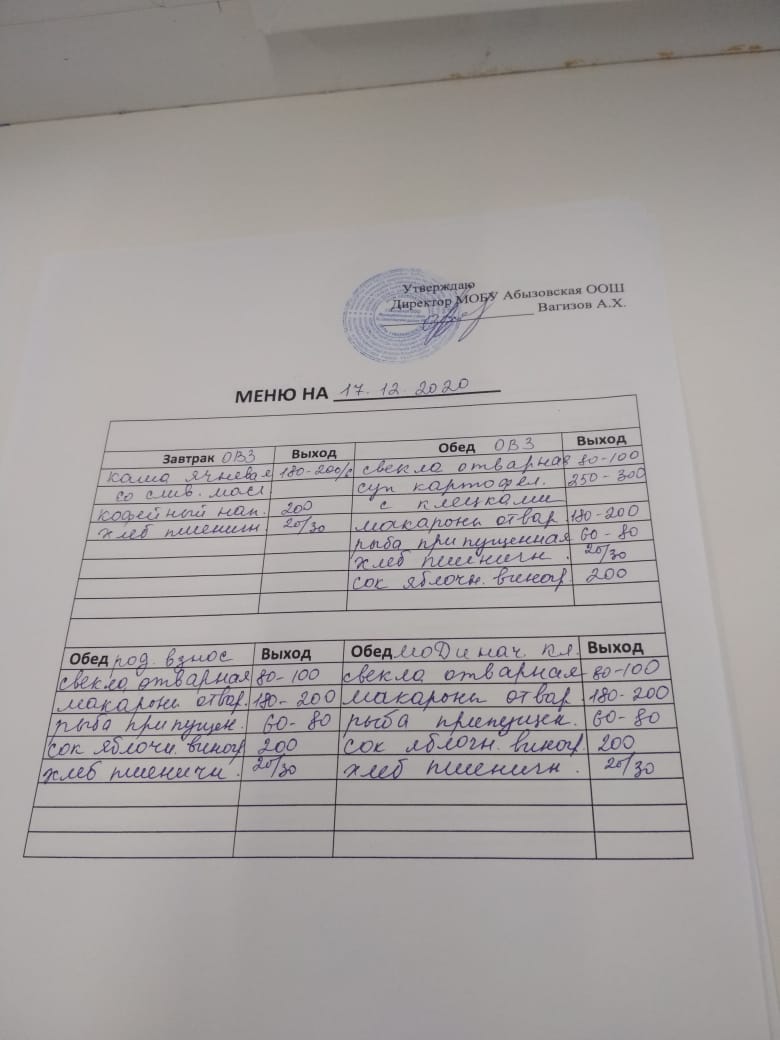 Утверждаю
Директор МОБУ Абызовская ООШ
Вагизов А.Х.
МЕНЮ НА 17.12.2020
Завтрак ОВЗ Выход Обед ОВЗ Выход
каша ячневая 180-200/5 свекла отварная 80-100
со слив. масл суп картофел. 250-300
с клецками
кофейный нап. 200 макароны отвар 180-200
хлеб пшеничн. 20/30 рыба припущенная 60-80
хлеб пшеничн. 20/30
сок яблочн. виногр 200
Обед род. взнос Выход Обед МОДи нач. кл. Выход
свекла отварная 80-100 свекла отварная 80-100
макароны отвар. 180-200 макароны отвар. 180-200
рыба припущен. 60-80 рыба припущен. 60-80
сок яблочн. виногр 200 сок яблочн. виногр 200
хлеб пшеничн. 20/30 хлеб пшеничн. 20/30